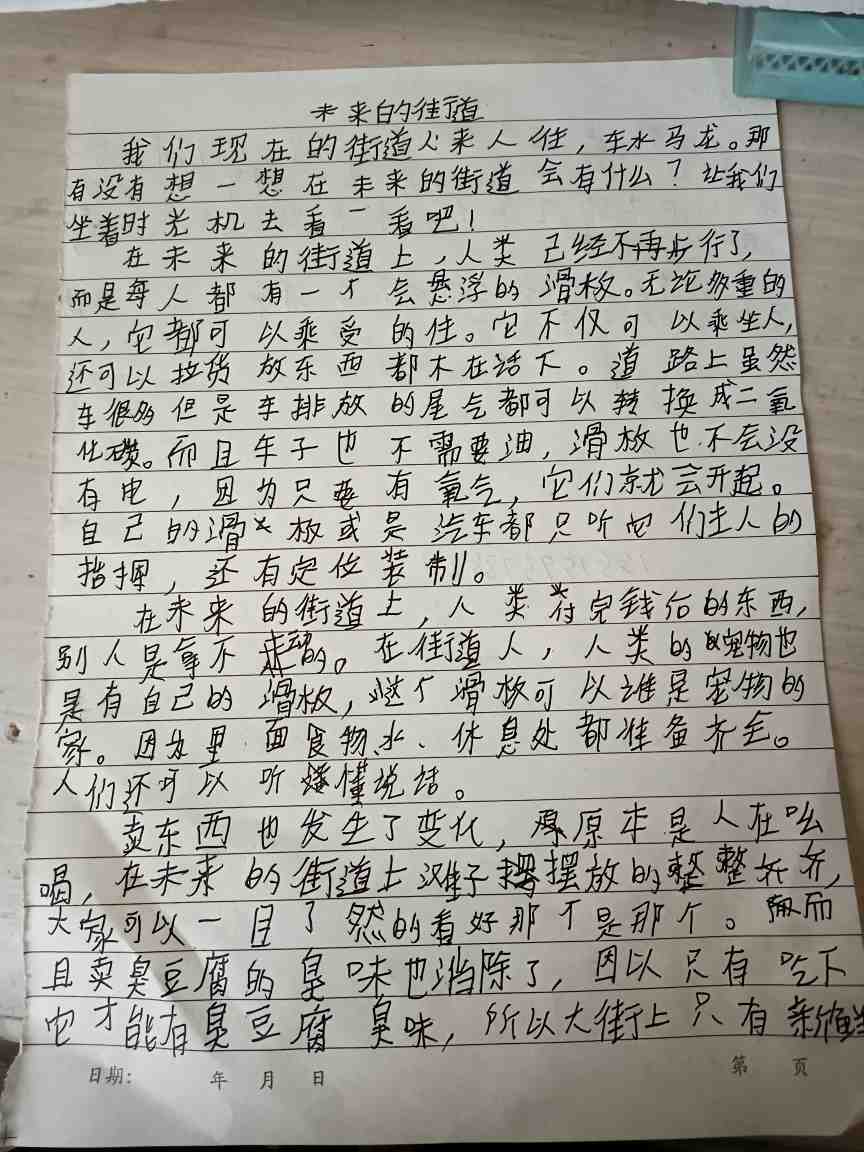 未来的街道
我们现在的街道人来人往，车水马龙。那
有没有想一想在未来的街道会有什么？让我们
坐着时光机去看一看吧！
在未来的街道上，人类已经不再步行了，
而是每人都有一个会悬浮的滑板。无论多重的
人，它都可以乘受的住。它不仅可以乘坐人，
还可以拉货放东西都不在话下。道路上虽然
车很多但是车排放的尾气都可以转换成二氧
化碳。而且车子也不需要油，滑放也不会没
有电，因为只要有氧气，它们就会开起。
自己的滑板或是汽车都只听它们主人的
指挥，还有定位装制。
在未来的街道上，人类付完钱后的东西，
别人是拿不走的。在街道人，人类的宠物也
是有自己的滑板，这个滑板可以谁是宠物的
家。因为里面食物水、休息处都准备齐全。
人们还可以听懂说话。
卖东西也发生了变化，原本是人在吆
喝，在未来的街道上滩子摆放的整整齐齐，
大家可以一目了然的看好那个是那个。而
且卖臭豆腐的臭味也消除了，因以只有吃下
它才能有臭豆腐臭味，所以大街上只有新鲜
日期： 年 月 日
第 页